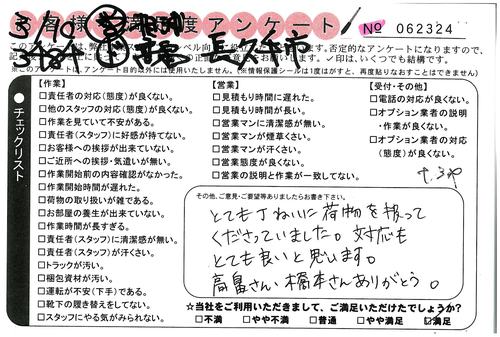 3/19
お客様満足度アンケート
No 062324
長久手市
※このアンケートは、アンケート目的以外には使用できません。(※情報保護シールは1度はがすと、再度貼りなおすことはできません)
●チェックリスト
【作業】
□責任者の対応(態度)が良くない。
□他のスタッフの対応(態度)が良くない。
□作業を見ていて不安がある。
□責任者(スタッフ)に好感が持てない。
□お客様への挨拶が出来ていない。
□ご近所への挨拶・気遣いが無い。
□作業開始前の内容確認がなかった。
□作業開始時間が遅れた。
□荷物の取り扱いが雑である。
□お部屋の養生が出来ていない。
□作業時間が長すぎる。
□責任者(スタッフ)に清潔感が無い。
□責任者(スタッフ)が汗くさい。
□トラックが汚い。
□梱包資材が汚い。
□運転が不安(下手)である。
□靴下の履き替えをしてない。
□スタッフにやる気がみられない。
【営業】
□見積もり時間に遅れた。
□見積もり時間が長い。
□営業マンに清潔感が無い。
□営業マンが煙草くさい。
□営業マンが汗くさい。
□営業態度が良くない。
□営業の説明と作業が一致してない。
【受付・その他】
□電話の対応が良くない。
□オプション業者の説明
・作業が良くない。
□オプション業者の対応
(態度)が良くない。
その他、ご意見・ご要望等ありましたらお書き下さい。
とても丁ねいに荷物を扱って
くださっていました。対応も
とても良いと思います。
高畠さん・橋本さんありがとう。
☆当社をご利用いただきまして、ご満足いただけたでしょうか?
□不満 □やや不満 □普通 □やや満足 ☑満足